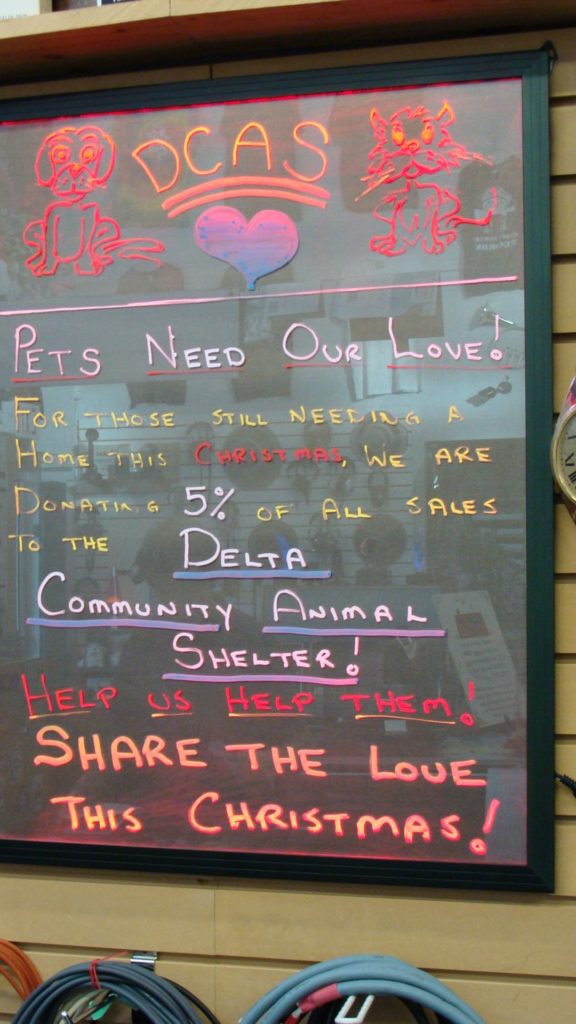 DCAS
PETS NEED OUR LOVE!
FOR THOSE STILL NEEDING A
HOME THIS CHRISTMAS, WE ARE
DONATING 5% OF ALL SALES
TO THE DELTA
COMMUNITY ANIMAL
SHELTER!
HELP US HELP THEM!
SHARE THE LOVE
THIS CHRISTMAS!